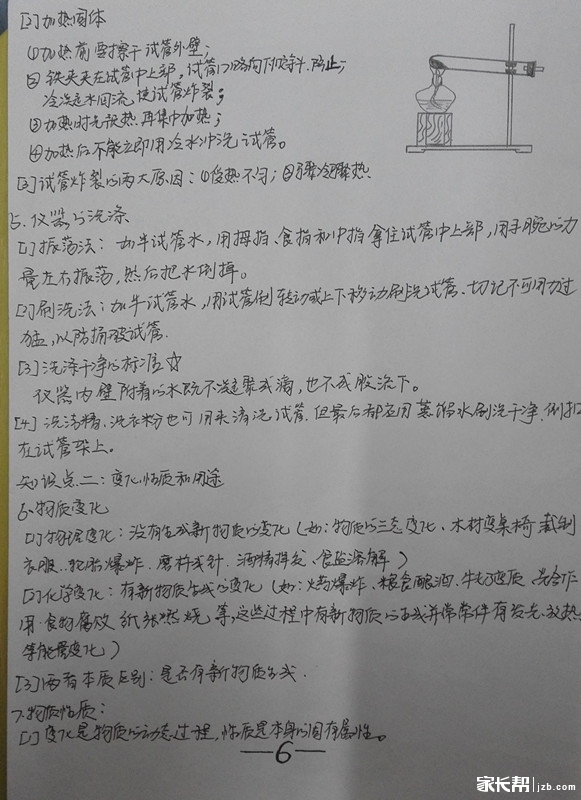 [2]加热固体
①加热前要擦干试管外壁;
②铁夹夹在试管中上部,试管口略向下倾斜.防止;
冷凝水回流使试管炸裂;
③加热时先预热再集中加热;
④加热后不能立即用冷水冲洗试管。
[3]试管炸裂的两大原因:①受热不匀;②骤冷骤热
5.仪器的洗涤
[1]振荡法:加半试管水,用拇指、食指和中指拿住试管中上部,用手腕的力
量左右振荡,然后把水倒掉。
[2]刷洗法:加半试管水,用试管刷转动或上下移动刷洗试管、切记不可用力过
猛,以防捅破试管.
[3]洗涤干净的标准☆
仪器内壁附着的水既不凝聚成滴,也不成股流下。
[4]洗洁精、洗衣粉也可用来清洗试管.但最后都应用蒸馏水刷洗干净.倒扣
在试管架上。
知识点二:变化性质和用途
6、物质变化
[1]物理变化:没有生成新物质的变化(如:物质的三态变化、木材变桌椅 裁制
衣服、轮胎爆炸.磨杵成针.酒精挥发、食盐溶解)
[2]化学变化:有新物质生成的变化(如:火药爆炸、粮食酿酒.牛奶变质 光合作
用.食物腐败 纸张燃烧等,这些过程中有新物质的生成并常常伴有发光、放热
等能量变化)
[3]两者本质区别:是否有新物质生成.
7.物质性质:
[1]变化是物质的动态过程,性质是本身的固有属性。
—6—
家长帮 jzb.com